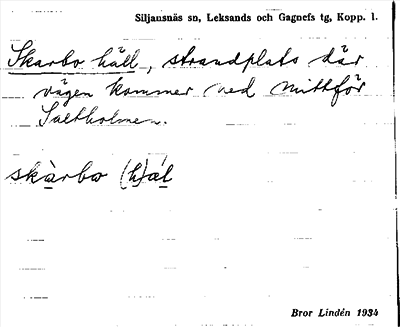 Siljansnäs sn, Leksands och Gagnefs tg, Kopp. l.
Skarbo häll, strandplats där
vägen kommer ned mittför
Saltholmen.
skàrbo (h)æ̀l
Bror Lindén 1934